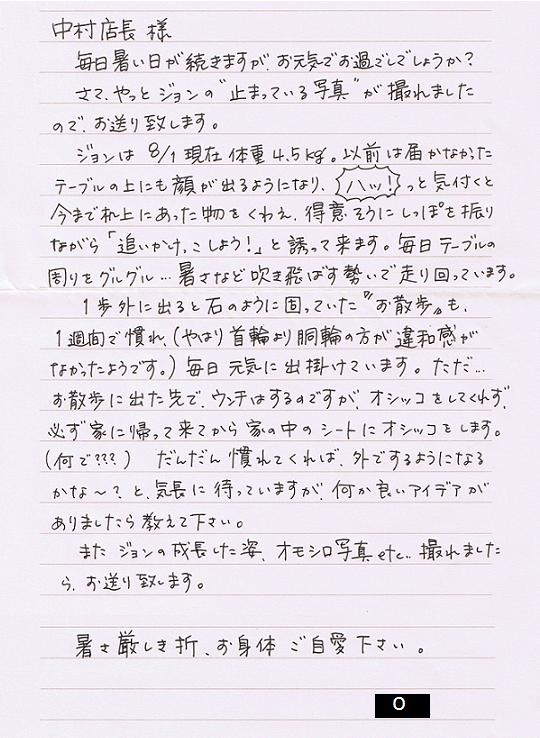 中村店長 様
毎日暑い日が続きますが、お元気でお過ごしでしょうか?
さて、やっと ジョンの"止まっている写真"が 撮れました
ので、お送り致します。
ジョンは 8/1 現在 体重 4.5kg。以前は届かなかった
テーブルの上にも顔が出るようになり、ハッ!っと気付くと
今まで机上にあった物をくわえ、得意そうにしっぽを振り
ながら「追いかけっこしよう!」と誘って来ます。毎日テーブルの
周りをグルグル…暑さなど吹き飛ばす勢いで走り回っています。
1歩外に出ると石のように固っていた〝お散歩〟も、
1週間で慣れ、(やはり首輪より胴輪の方が違和感が
なかったようです。)毎日 元気に出掛けています。ただ…
お散歩に出た先で、ウンチはするのですが、オシッコをしてくれず、
必ず家に帰って来てから 家の中のシートにオシッコをします。
(何で???) だんだん慣れてくれば、外でするようになる
かな〜?と、気長に待っていますが、何か良いアイデアが
ありましたら教えて下さい。
また ジョンの成長した姿、オモシロ写真 etc.. 撮れました
ら、お送り致します。
暑さ厳しき折、お身体 ご自愛下さい。
O